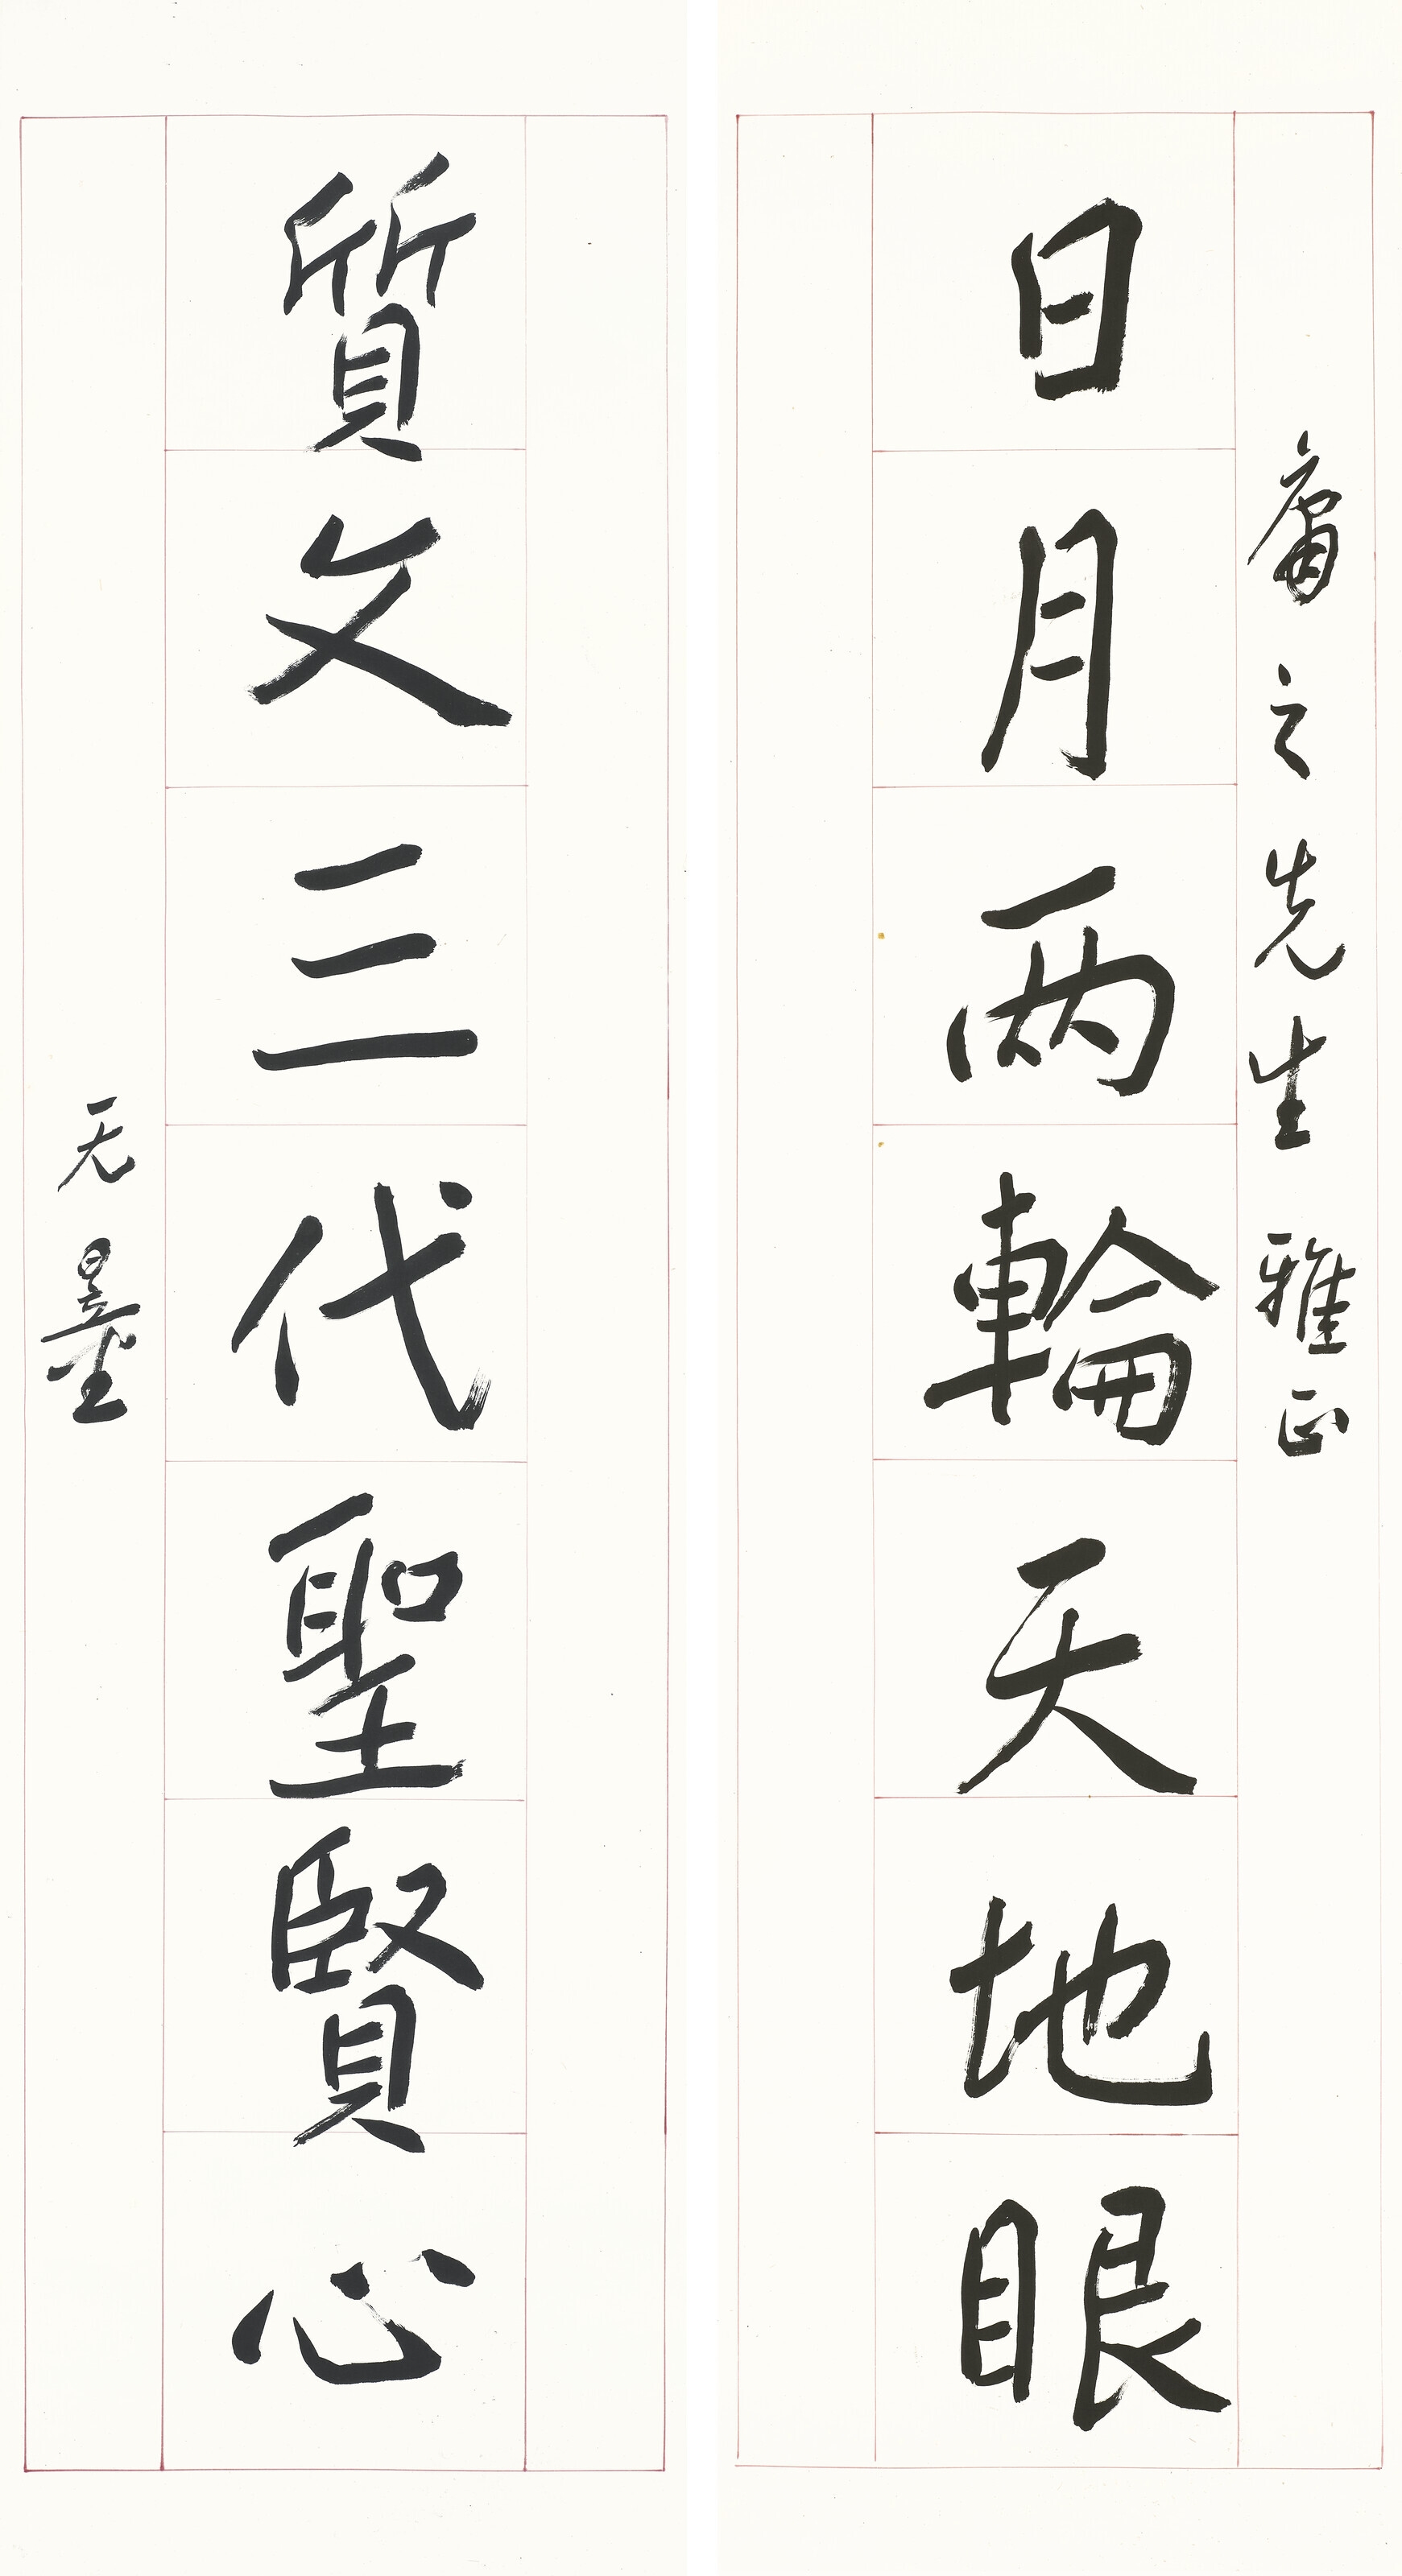 庸之先生雅正
日月两輪天地眼
質文三代聖賢心
无墨